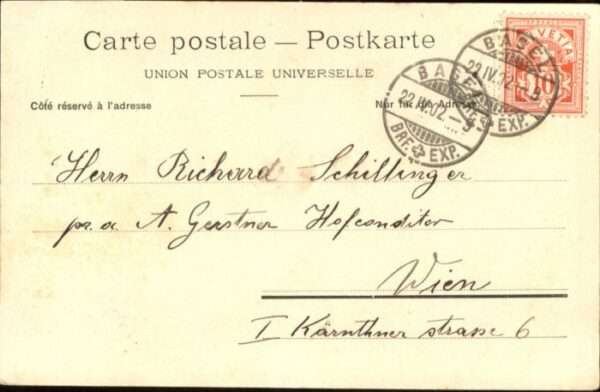 Carte postale — Postkarte
UNION POSTALE UNIVERSELLE
Côté réservé à l'adresse
Nur für die Adresse
HELVETIA
10
BASEL
22.IV.02.-9
BRF. EXP.
BASEL
22.IV.02.-9
EXP.
Herrn Richard Schillinger
pr. a. A. Gerstner Hofconditor
Wien
I Kärnthner strasse 6